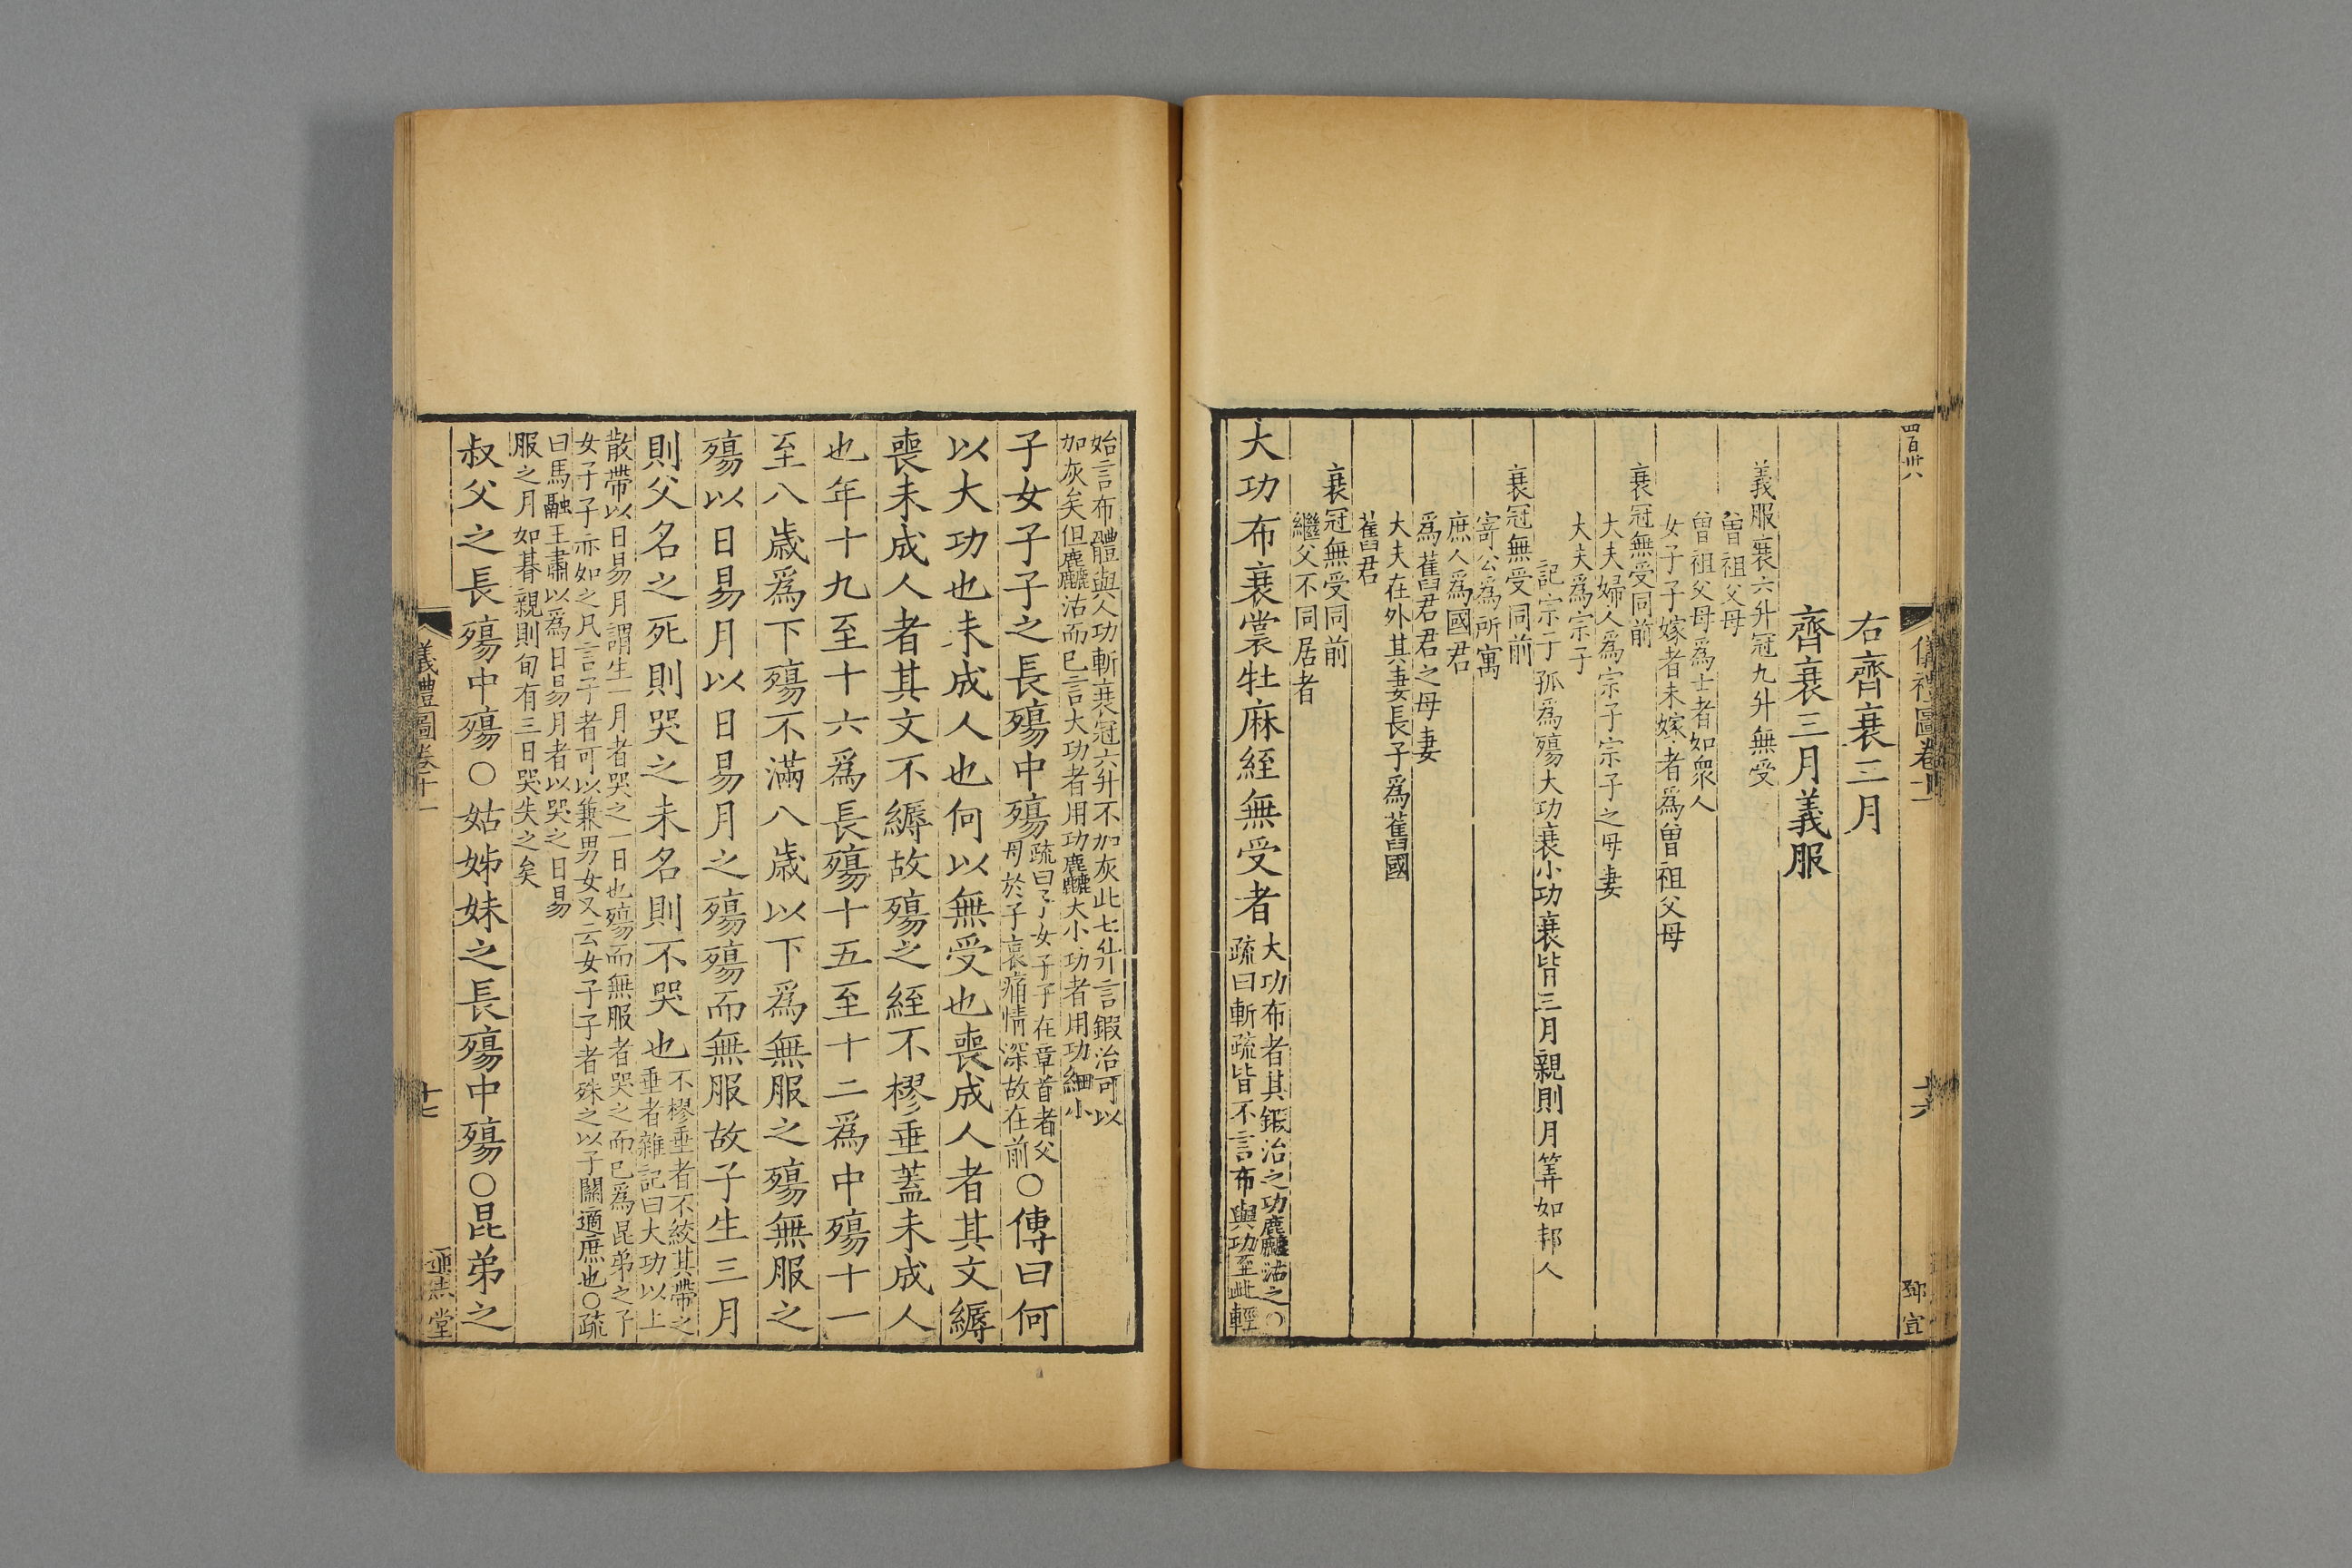 四百卅八
儀禮圖卷十一
十六
鄧宜
右齊衰三月
齊衰三月義服
義服衰六升冠九升無受
曾祖父母
曾祖父母爲士者如衆人
女子子嫁者未嫁者爲曾祖父母
衰冠無受同前
大夫婦人爲宗子宗子之母妻
大夫爲宗子
記宗子孤爲殤大功衰小功衰皆三月親則月筭如邦人
衰冠無受同前
寄公爲所寓
庶人爲國君
爲舊君君之母妻
大夫在外其妻長子爲舊國
舊君
衰冠無受同前
繼父不同居者
大功布衰裳牡麻絰無受者大功布者其鍛治之功麤沽之○
疏曰斬疏皆不言布與功至此輕
始言布體與人功斬衰冠六升不加灰此七升言鍛治可以
加灰矣但麤沽而已言大功者用功麤大小功者用功細小
子女子子之長殤中殤疏曰子女子子在章首者父
母於子哀痛情深故在前○傳曰何
以大功也未成人也何以無受也喪成人者其文縟
喪未成人者其文不縟故殤之絰不樛垂蓋未成人
也年十九至十六爲長殤十五至十二爲中殤十一
至八歲爲下殤不滿八歲以下爲無服之殤無服之
殤以日易月以日易月之殤殤而無服故子生三月
則父名之死則哭之未名則不哭也不樛垂者不絞其帶之
垂者雜記曰大功以上
散帶以日易月謂生一月者哭之一日也殤而無服者哭之而已爲昆弟之子
女子子亦如之凡言子者可以兼男女又云女子子者殊之以子關適庶也○疏
曰馬融王肅以爲日易月者以哭之日易
服之月如朞親則旬有三日哭失之矣
叔父之長殤中殤○姑姊妹之長殤中殤○昆弟之
儀禮圖卷十一
十七
通志堂